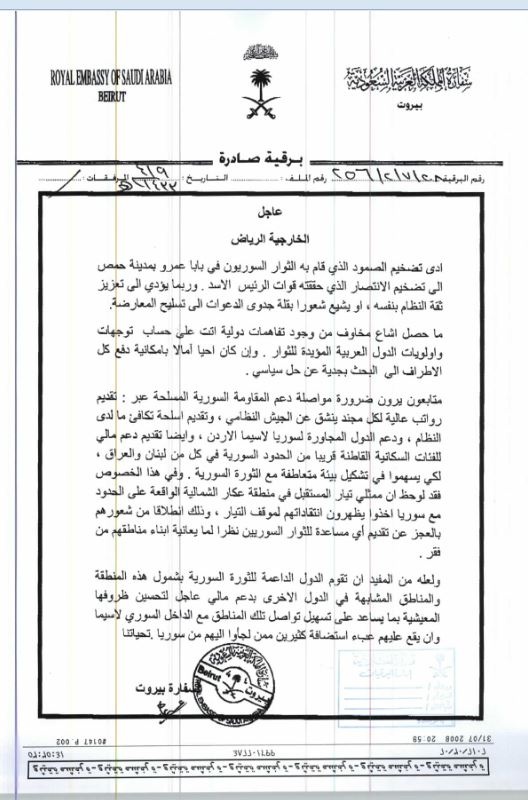 ROYAL EMBASSY OF SAUDI ARABIA
BEIRUT
سفارة المملكة العربية السعودية
بيروت
برقية صادرة
رقم البرقية: رقم الملف: التاريخ: ٤/٩ ١٤٣٣ المرفقات:
عاجل
الخارجية الرياض
ادى تضخيم الصمود الذي قام به الثوار السوريون في بابا عمرو بمدينة حمص
الى تضخيم الانتصار الذي حققته قوات الرئيس الاسد . وربما يؤدي الى تعزيز
ثقة النظام بنفسه ، او يشيع شعورا بقلة جدوى الدعوات الى تسليح المعارضة.
ما حصل اشاع مخاوف من وجود تفاهمات دولية اتت على حساب توجهات
واولويات الدول العربية المؤيدة للثوار . وإن كان احيا آمالا بامكانية دفع كل
الاطراف الى البحث بجدية عن حل سياسي .
متابعون يرون ضرورة مواصلة دعم المقاومة السورية المسلحة عبر : تقديم
رواتب عالية لكل مجند ينشق عن الجيش النظامي ، وتقديم اسلحة تكافئ ما لدى
النظام ، ودعم الدول المجاورة لسوريا لاسيما الاردن ، وايضا تقديم دعم مالي
للفئات السكانية القاطنة قريبا من الحدود السورية في كل من لبنان والعراق ،
لكي يسهموا في تشكيل بيئة متعاطفة مع الثورة السورية . وفي هذا الخصوص
فقد لوحظ ان ممثلي تيار المستقبل في منطقة عكار الشمالية الواقعة على الحدود
مع سوريا اخذوا يظهرون انتقاداتهم لموقف التيار ، وذلك انطلاقا من شعورهم
بالعجز عن تقديم أي مساعدة للثوار السوريين نظرا لما يعانية ابناء مناطقهم من
فقر .
ولعله من المفيد ان تقوم الدول الداعمة للثورة السورية بشمول هذه المنطقة
والمناطق المشابهة في الدول الاخرى بدعم مالي عاجل لتحسين ظروفها
المعيشية بما يساعد على تسهيل تواصل تلك المناطق مع الداخل السوري لاسيما
وان يقع عليهم عبء استضافة كثيرين ممن لجأوا اليهم من سوريا .تحياتنا
سفارة بيروت
Beirut
بيروت
31/07 2008 20:59 #0147 P.002